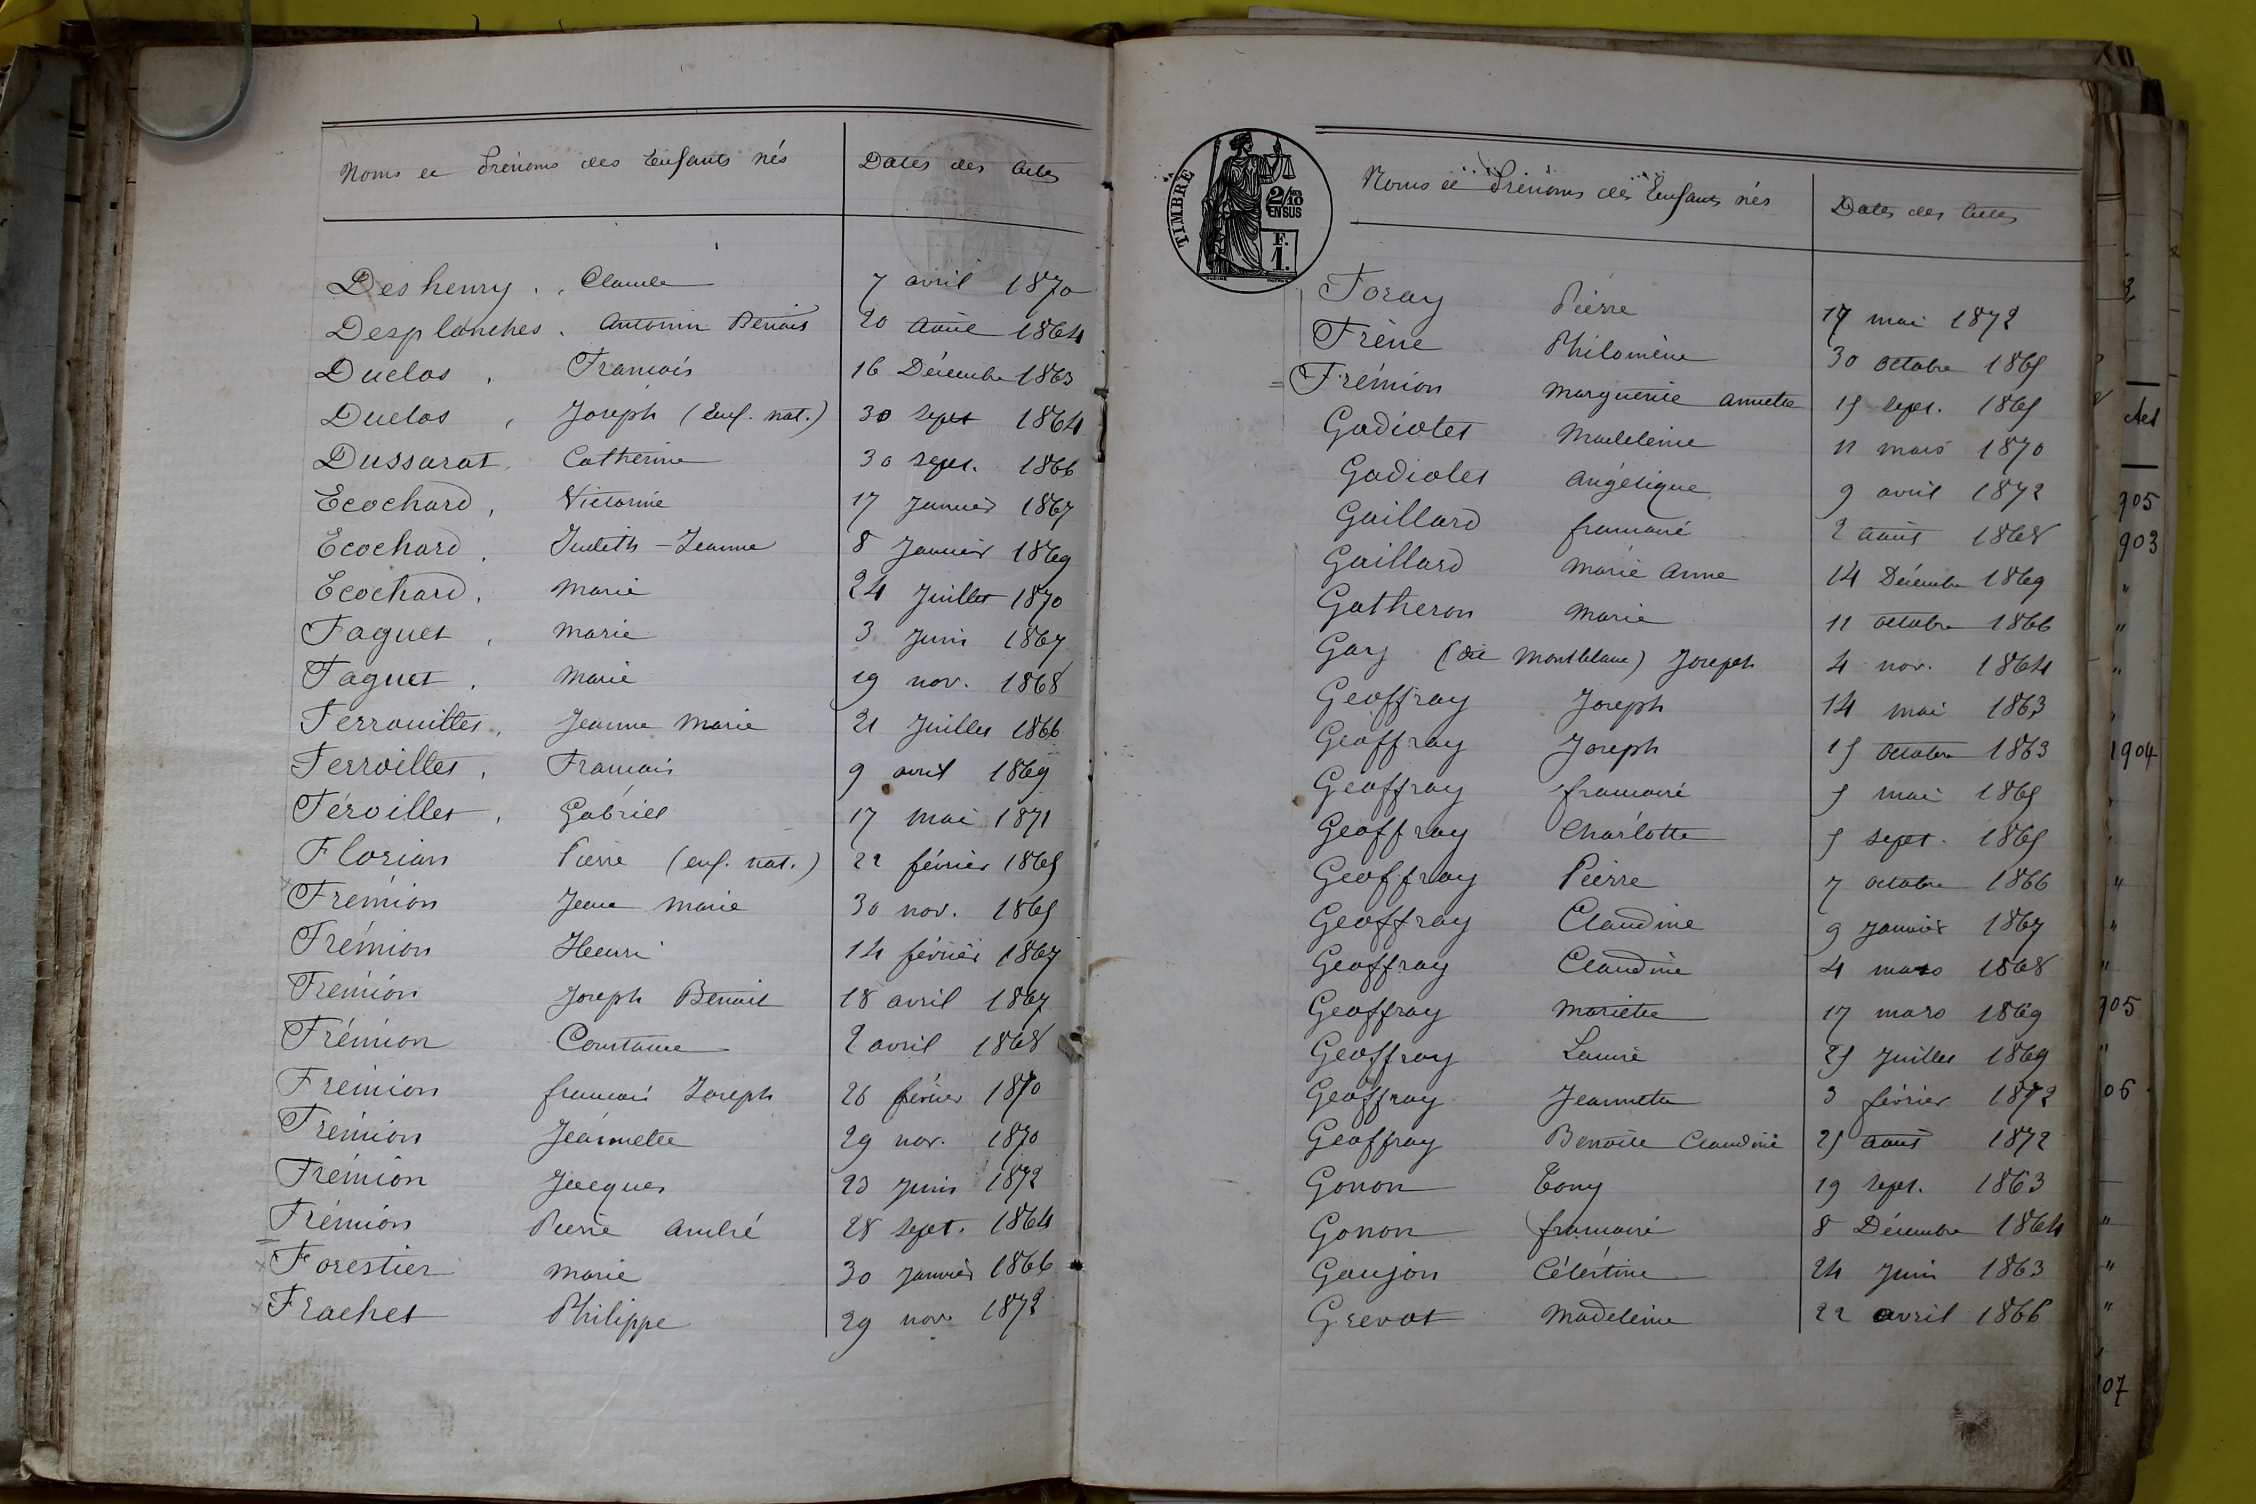 Noms et Prénoms des Enfants nés Dates des Actes
Deshenry Claude 7 avril 1870
Desplanches Antonin Benoit 20 Août 1864
Duclos François 16 Décembre 1863
Duclos Joseph (Enf. nat.) 30 sept 1864
Dussarat Catherine 30 sept. 1866
Ecochard Victorine 17 Janvier 1867
Ecochard Judith-Jeanne 8 Janvier 1869
Ecochard Marie 24 Juillet 1870
Faguet Marie 3 Juin 1867
Faguet Marie 19 nov. 1868
Ferrouillet Jeanne Marie 21 Juillet 1866
Ferroillet François 9 avril 1869
Féroillet Gabriel 17 mai 1871
Florian Pierre (enf. nat.) 22 février 1865
Frémion Jeanne Marie 30 nov. 1865
Frémion Henri 14 février 1867
Frémion Joseph Benoit 18 avril 1867
Frémion Constance 2 avril 1868
Frémion François Joseph 26 février 1870
Frémion Jeannette 29 nov. 1870
Frémion Jacques 23 Juin 1872
Frémion Pierre André 28 sept. 1864
Forestier Marie 30 Janvier 1866
Frachet Philippe 29 nov. 1872
TIMBRE
2/10 EN SUS
F. 1.
Noms et Prénoms des Enfants nés Dates des Actes
Foray Pierre 17 mai 1872
Frène Philomène 30 octobre 1865
Frémion Marguerite Annette 15 sept. 1865
Gadiolet Madeleine 11 mars 1870
Gadiolet Angélique 9 avril 1872
Gaillard françoise 2 Août 1868
Gaillard Marie Anne 14 Décembre 1869
Gatheron Marie 11 octobre 1866
Gary (dit Montblanc) Joseph 4 nov. 1864
Geoffray Joseph 14 mai 1863
Geoffray Joseph 15 octobre 1863
Geoffray françoise 5 mai 1865
Geoffray Charlotte 5 sept. 1865
Geoffray Pierre 7 octobre 1866
Geoffray Claudine 9 Janvier 1867
Geoffray Claudine 4 mars 1868
Geoffray Mariette 17 mars 1869
Geoffray Laurie 25 Juillet 1869
Geoffray Jeannette 3 février 1872
Geoffray Benoite Claudine 25 Août 1872
Gonon Tony 19 sept. 1863
Gonon françoise 8 Décembre 1864
Goujon Célestine 24 Juin 1863
Grevat Madeleine 22 avril 1866
905
903
1904
905
06
07